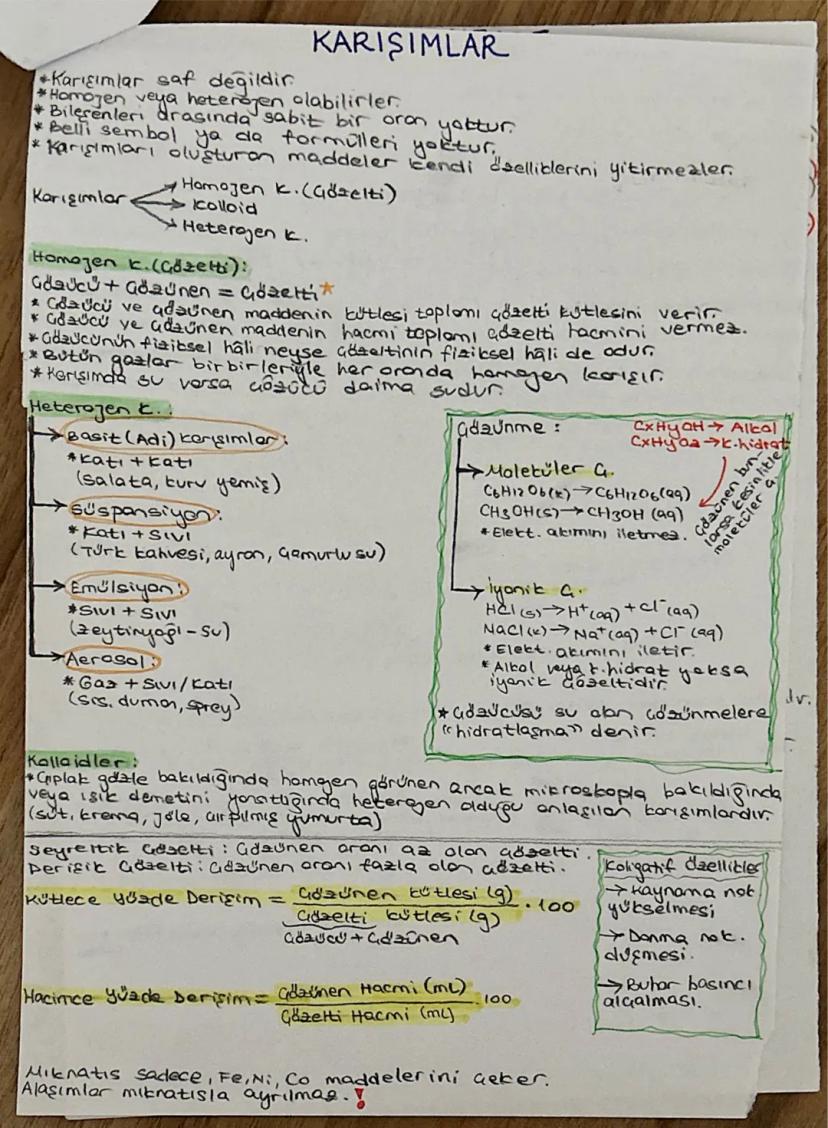 KARIŞIMLAR
*Karışımlar saf değildir.
*Homojen veya heterojen olabilirler.
*Bileşenleri arasında sabit bir oran yoktur.
*Belli sembol ya da formülleri yoktur.
*Karışımları oluşturan maddeler kendi özelliklerini yitirmezler.
Karışımlar
Homojen k. (Çözelti)
Kolloid
Heterojen k.
Homojen k. (Çözelti):
Çözücü + Çözünen = Çözelti*
* Çözücü ve çözünen maddenin kütlesi toplamı çözelti kütlesini verir.
* Çözücü ve çözünen maddenin hacmi toplamı çözelti hacmini vermez.
*Çözücünün fiziksel hâli neyse çözeltinin fiziksel hâli de odur.
*Bütün gazlar birbirleriyle her oranda homojen karışır.
*Karışımda su varsa çözücü daima sudur.
Heterojen k.:
→Basit (Adi) karışımlar:
*Katı + Katı
(salata, kuru yemiş)
→Süspansiyon:
*Katı + Sıvı
(Türk kahvesi, ayran, çamurlu su)
→Emülsiyon:
*Sıvı + Sıvı
(zeytinyağı-su)
→Aerosol:
*Gaz + Sıvı/Katı
(sis, duman, sprey)
Çözünme:
CxHyOH→ Alkol
CxHyOz→k.hidrat
Çözünen bun-
larsa kesinlikle
moleküler ç.
→Moleküler Ç.
C6H12O6(k)→C6H12O6(aq)
CH3OH(s)→CH3OH(aq)
*Elekt. akımını iletmez.
→İyonik Ç.
HCl(s)→H+(aq)+Cl-(aq)
NaCl(k)→Na+(aq)+Cl-(aq)
*Elekt. akımını iletir.
*Alkol veya k.hidrat yoksa
iyonik çözeltidir.
*Çözücüsü su olan çözünmelere
"hidratlaşma" denir.
Kolloidler:
*Çıplak gözle bakıldığında homojen görünen ancak mikroskopla bakıldığında
veya ışık demetini yansıttığında heterojen olduğu anlaşılan karışımlardır.
(süt, krema, jöle, çırpılmış yumurta)
Seyreltik Çözelti: Çözünen oranı az olan çözelti.
Derişik Çözelti: Çözünen oranı fazla olan çözelti.
Kütlece Yüzde Derişim = Çözünen kütlesi (g) / Çözelti kütlesi (g) . 100
Çözücü + Çözünen
Hacimce Yüzde Derişim = Çözünen Hacmi (mL) / Çözelti Hacmi (mL) .100
Koligatif Özellikler
→ Kaynama nok.
yükselmesi
→ Donma nok.
düşmesi.
→ Buhar basıncı
alçalması.
Mıknatıs sadece, Fe, Ni, Co maddelerini çeker.
Alaşımlar mıknatısla ayrılmaz.!